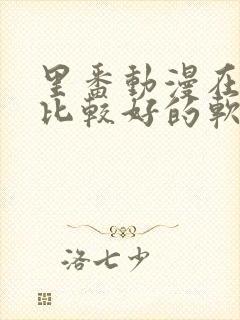 里番動漫在
比較好的軟
洛七少